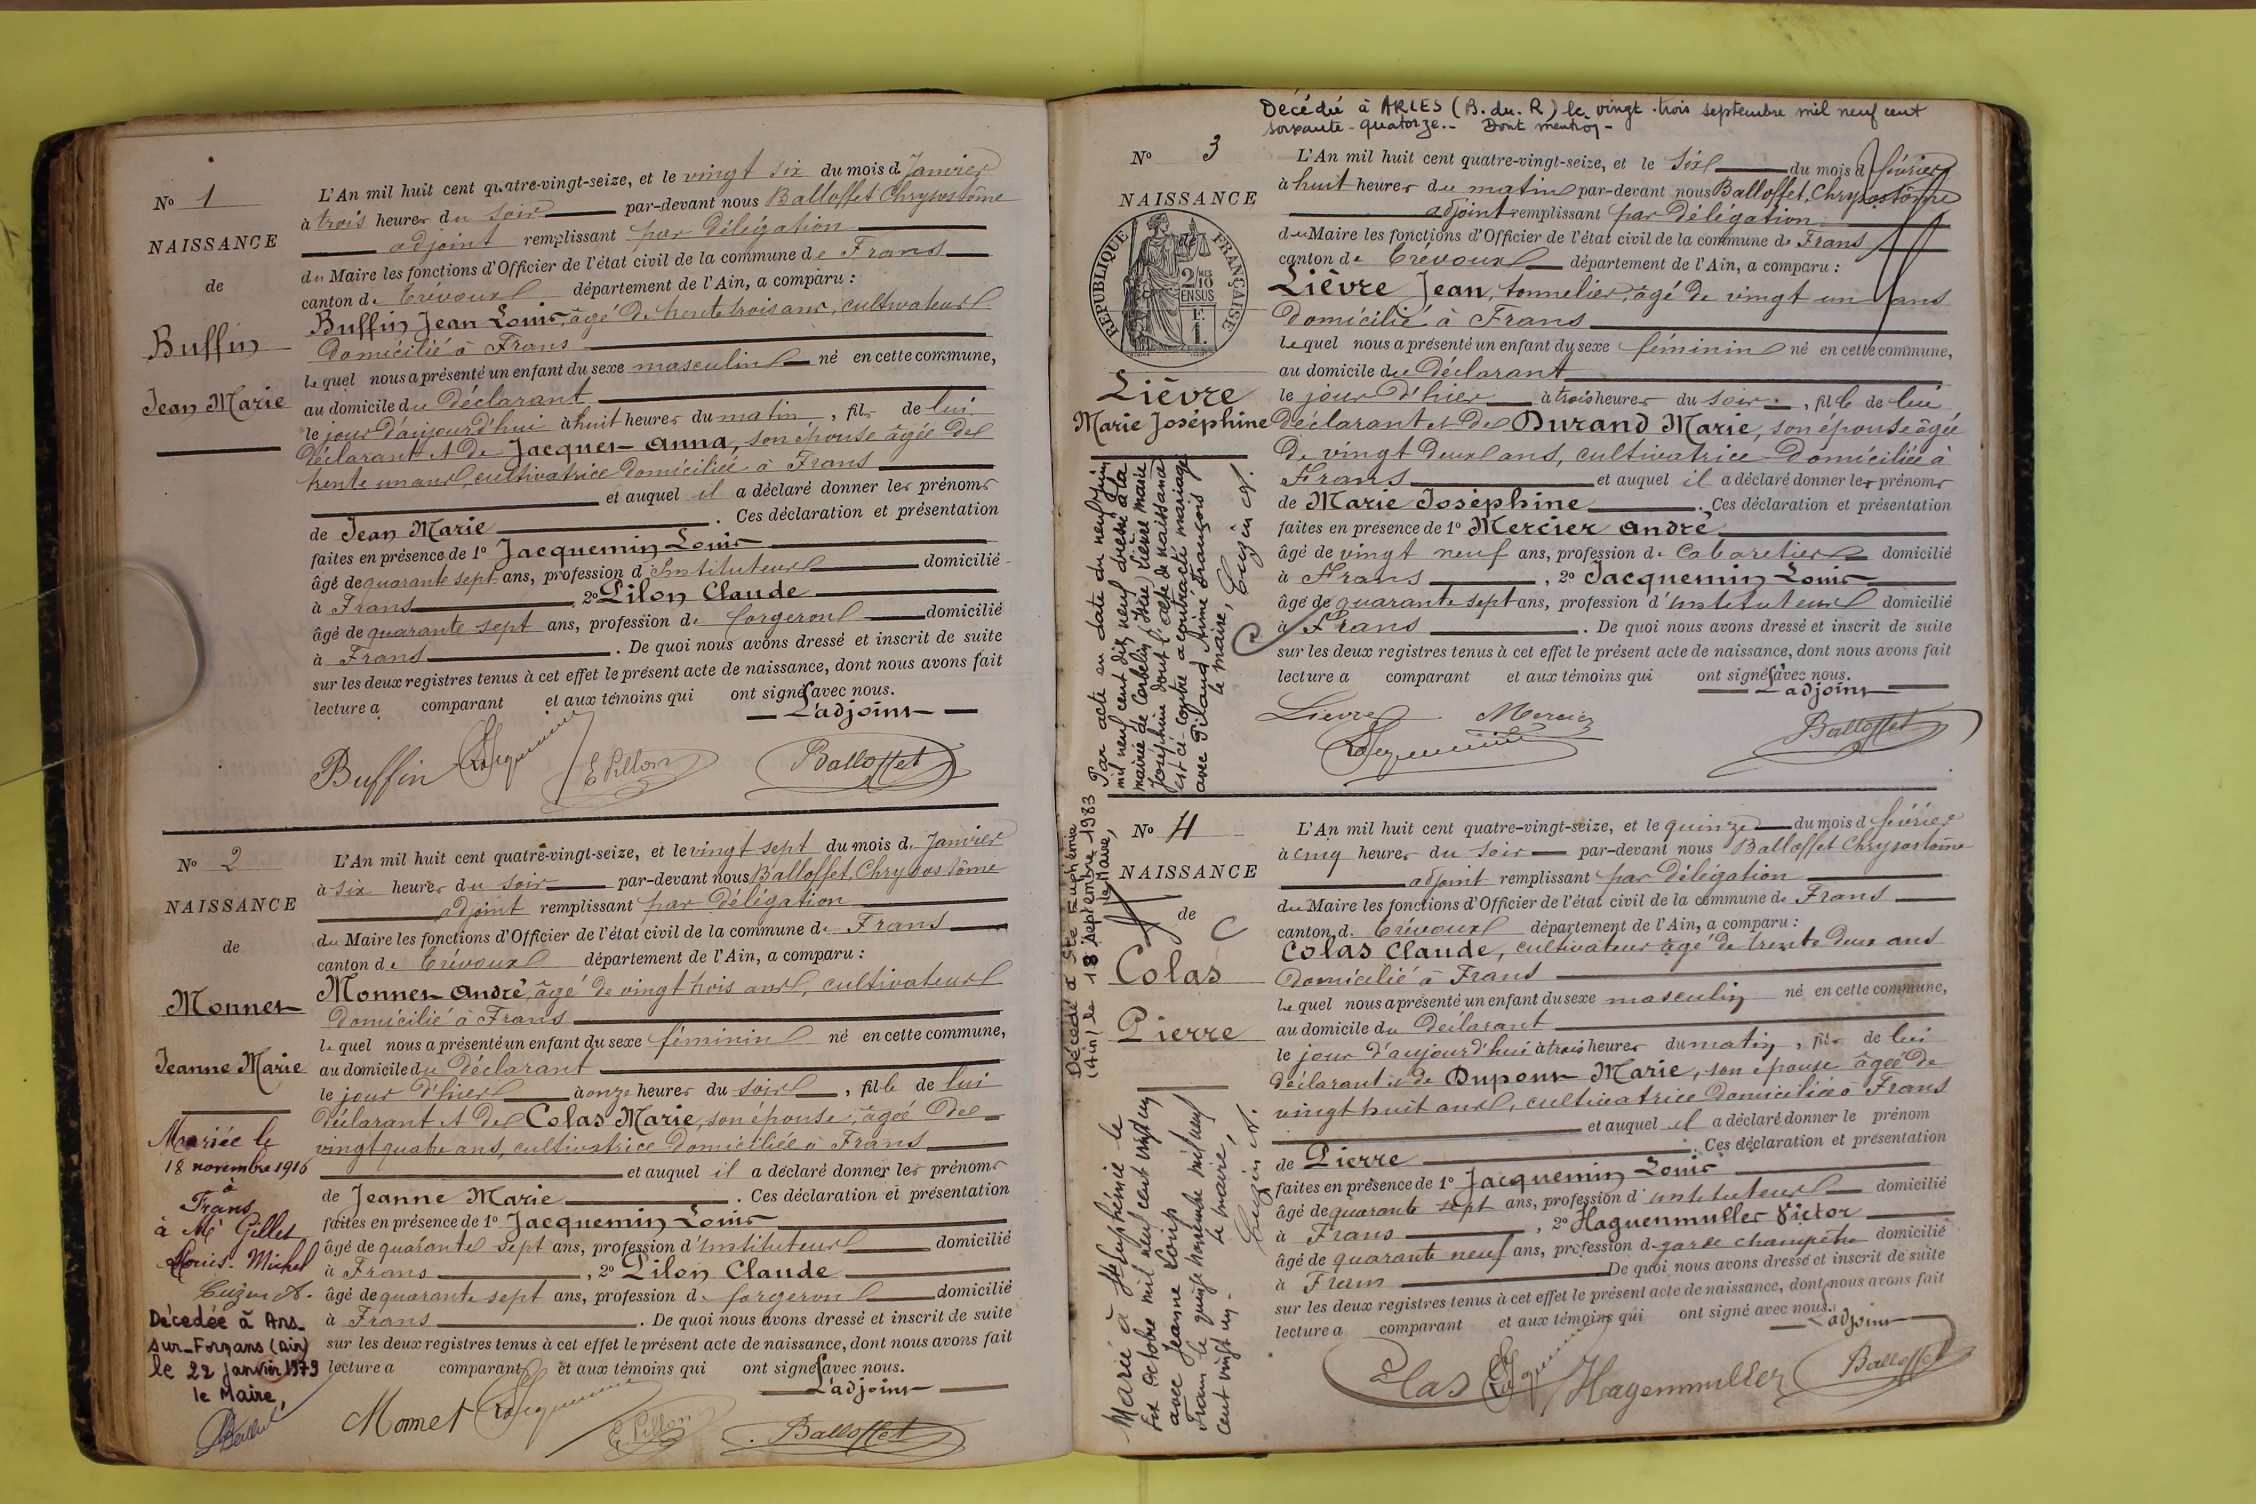 N° 1
NAISSANCE
de
Buffin
Jean Marie
L'An mil huit cent quatre-vingt-seize, et le vingt six du mois d Janvier
à trois heures du soir par-devant nous Balloffet Chrysostôme
adjoint remplissant par délégation
du Maire les fonctions d'Officier de l'état civil de la commune de Frans
canton de Trévoux département de l'Ain, a comparu :
Buffin Jean Louis, âgé de trente trois ans, cultivateur
domicilié à Frans
lequel nous a présenté un enfant du sexe masculin né en cette commune,
au domicile du déclarant
le jour d'aujourd'hui à huit heures du matin, fils de lui
déclarant et de Jacquet Anna, son épouse âgée de
trente un ans, cultivatrice domiciliée à Frans
et auquel il a déclaré donner les prénoms
de Jean Marie. Ces déclaration et présentation
faites en présence de 1° Jacquemin Louis
âgé de quarante sept ans, profession d'instituteur domicilié
à Frans, 2° Pilon Claude
âgé de quarante sept ans, profession de forgeron domicilié
à Frans. De quoi nous avons dressé et inscrit de suite
sur les deux registres tenus à cet effet le présent acte de naissance, dont nous avons fait
lecture a comparant et aux témoins qui ont signé avec nous.
L'adjoint
Buffin Jacquemin Pillon Balloffet
N° 2
NAISSANCE
de
Monnet
Jeanne Marie
Mariée le
18 novembre 1916
à
Frans
à Mr Gillet
Louis Michel
Cuzin A.
Décédée à Ars-
sur-Formans (Ain)
le 22 janvier 1979
le Maire,
L'An mil huit cent quatre-vingt-seize, et le vingt sept du mois de Janvier
à six heures du soir par-devant nous Balloffet Chrysostôme
adjoint remplissant par délégation
du Maire les fonctions d'Officier de l'état civil de la commune de Frans
canton de Trévoux département de l'Ain, a comparu :
Monnet André, âgé de vingt trois ans, cultivateur
domicilié à Frans
lequel nous a présenté un enfant du sexe féminin né en cette commune,
au domicile du déclarant
le jour d'hier à onze heures du soir, fille de lui
déclarant et de Colas Marie, son épouse, âgée de
vingt quatre ans, cultivatrice domiciliée à Frans
et auquel il a déclaré donner les prénoms
de Jeanne Marie. Ces déclaration et présentation
faites en présence de 1° Jacquemin Louis
âgé de quarante sept ans, profession d'instituteur domicilié
à Frans, 2° Pilon Claude
âgé de quarante sept ans, profession de forgeron domicilié
à Frans. De quoi nous avons dressé et inscrit de suite
sur les deux registres tenus à cet effet le présent acte de naissance, dont nous avons fait
lecture a comparant et aux témoins qui ont signé avec nous.
L'adjoint
Monnet Jacquemin Pillon Balloffet
Décédée à ARLES (B. du. R) le vingt-trois septembre mil neuf cent
soixante-quatorze.- Dont mention-
N° 3
NAISSANCE
de
RÉPUBLIQUE FRANÇAISE
2/10
EN SUS
Lièvre
Marie Joséphine
Par acte en date du neuf juin
mil neuf cent dix neuf dressé à la
mairie de Corbelin (Isère) Lièvre Marie
Joséphine dont l'acte de naissance
est ci-contre a contracté mariage
avec Pilaud Aimé François
le maire, Cuzin A.
L'An mil huit cent quatre-vingt-seize, et le six du mois d février
à huit heures du matin par-devant nous Balloffet, Chrysostôme
adjoint remplissant par délégation
du Maire les fonctions d'Officier de l'état civil de la commune de Frans
canton de Trévoux département de l'Ain, a comparu :
Lièvre Jean, tonnelier, âgé de vingt un ans
domicilié à Frans
lequel nous a présenté un enfant du sexe féminin né en cette commune,
au domicile du déclarant
le jour d'hier à trois heures du soir, fille de lui
déclarant et de Durand Marie, son épouse âgée
de vingt deux ans, cultivatrice domiciliée à
Frans et auquel il a déclaré donner les prénoms
de Marie Joséphine. Ces déclaration et présentation
faites en présence de 1° Mercier André
âgé de vingt neuf ans, profession de cabaretier domicilié
à Frans, 2° Jacquemin Louis
âgé de quarante sept ans, profession d'instituteur domicilié
à Frans. De quoi nous avons dressé et inscrit de suite
sur les deux registres tenus à cet effet le présent acte de naissance, dont nous avons fait
lecture a comparant et aux témoins qui ont signé avec nous.
L'adjoint
Lièvre Mercier
Jacquemin Balloffet
N° 4
NAISSANCE
de
Colas
Pierre
Décédé à Ste Euphémie
(Ain) le 18 septembre 1983
le Maire,
Marié à Ste Euphémie le
dix octobre mil neuf cent vingt un
avec Jeanne Loup
Frans le quinze novembre mil neuf
cent vingt un -
le maire,
Cuzin A.
L'An mil huit cent quatre-vingt-seize, et le quinze du mois d février
à cinq heures du soir par-devant nous Balloffet Chrysostôme
adjoint remplissant par délégation
du Maire les fonctions d'Officier de l'état civil de la commune de Frans
canton d. Trévoux département de l'Ain, a comparu :
Colas Claude, cultivateur âgé de trente deux ans
domicilié à Frans
lequel nous a présenté un enfant du sexe masculin né en cette commune,
au domicile du déclarant
le jour d'aujourd'hui à trois heures du matin, fils de lui
déclarant et de Dupont Marie, son épouse âgée de
vingt huit ans, cultivatrice domiciliée à Frans
et auquel il a déclaré donner le prénom
de Pierre. Ces déclaration et présentation
faites en présence de 1° Jacquemin Louis
âgé de quarante sept ans, profession d'instituteur domicilié
à Frans, 2° Haguenmuller Victor
âgé de quarante neuf ans, profession de garde champêtre domicilié
à Frans De quoi nous avons dressé et inscrit de suite
sur les deux registres tenus à cet effet le présent acte de naissance, dont nous avons fait
lecture a comparant et aux témoins qui ont signé avec nous.
L'adjoint
Colas Jacquemin Hagenmuller Balloffet